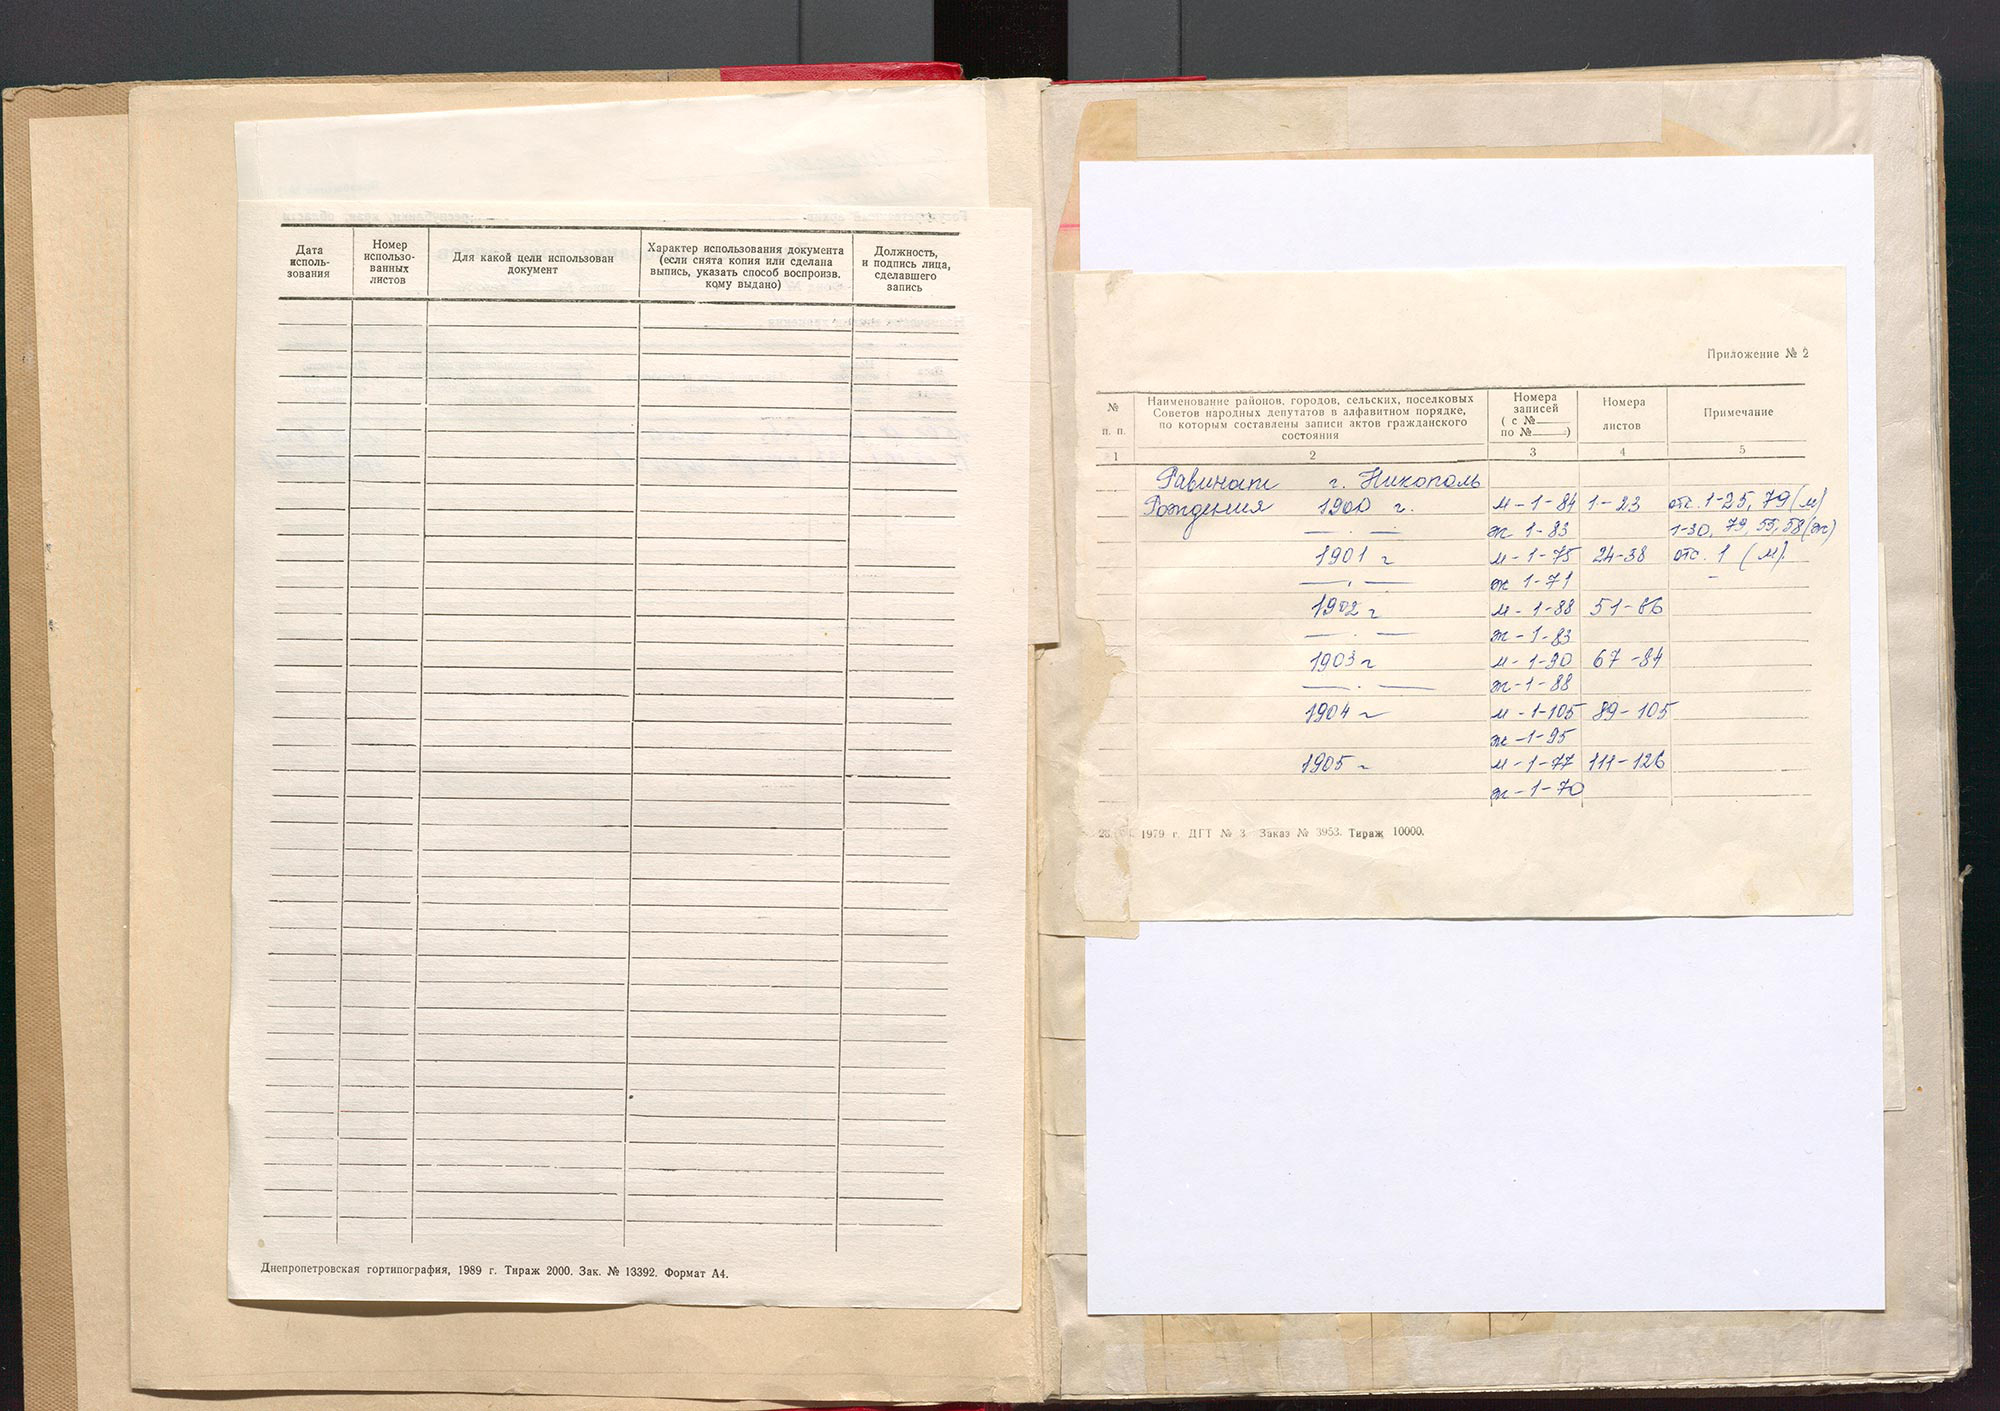 Дата
исполь-
зования
Номер
использо-
ванных
листов
Для какой цели использован
документ
Характер использования документа
(если снята копия или сделана
выпись, указать способ воспроизв.
кому выдано)
Должность,
и подпись лица,
сделавшего
запись
Днепропетровская гортипография, 1989 г. Тираж 2000. Зак. № 13392. Формат А4.
Приложение № 2
№
п. п.
Наименование районов, городов, сельских, поселковых
Советов народных депутатов в алфавитном порядке,
по которым составлены записи актов гражданского
состояния
Номера
записей
( с №____
по №____)
Номера
листов
Примечание
1 2 3 4 5
Равинат г. Никополь
Рождения 1900 г. м-1-84 1-23 отс. 1-25, 79 (м)
— . — ж 1-83 1-30, 79, 55, 58 (ж)
1901 г м-1-75 24-38 отс. 1 (м).
— , — ж 1-71 -
1902 г м-1-88 51-66
— . — ж-1-83
1903 г м-1-90 67-84
— . — ж-1-88
1904 г м-1-105 89-105
ж-1-95
1905 г м-1-77 111-126
ж-1-70
1979 г. ДГТ № 3 Заказ № 3953. Тираж 10000.